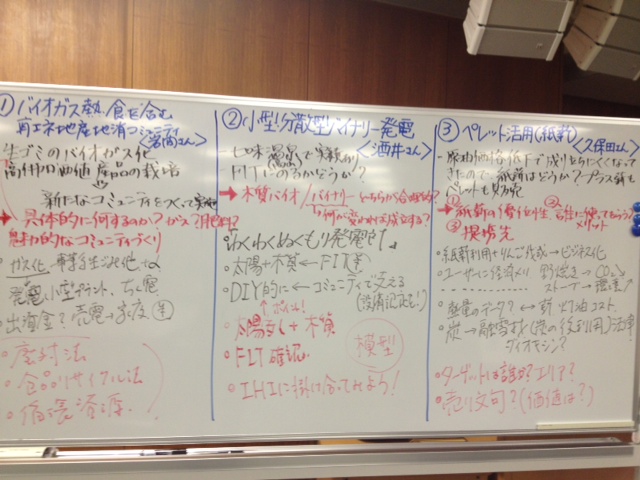 ① バイオガス熱・食を含む
再エネ地産地消コミュニティ
生ゴミのバイオガス化
高付加価値 産品の栽培
新たなコミュニティをつくって実施
→具体的に何するのか?ガス?肥料?
魅力的なコミュニティづくり
ガス化
発電 小型プラント
出資金? 売電→
・廃対法
・食品リサイクル法
・循環資源
② 小型分散型バイナリー発電
<酒井さん>
七味温泉で実績あり
FITにのるかどうか?
→木質バイオ/バイナリー どちらが合理的?
何が変われば成立する?
わくわくぬくもり発電所
太陽+木質←FIT
DIY的に←コミュニティで支える
↑ポイント!
太陽光+木質
FIT確認
模型
IHIに掛け合ってみよう!
③ ペレット活用(紙薪)
<久保田さん>
原油価格低下で成りたちにくくなって
きたので紙薪はどうか?プラス薪も
ペレットも
→①紙薪の優位性 ②
メリット
③提携先
紙薪利用+りんご作成→ビジネス化
ユーザーに経済メリ
CO₂↘
ストーブ→環境↗
熱量のデータ?←→薪、灯油コスト
炭→融雪材(炭の後利用)法律
ダイオキシン?
・ターゲットは誰か?エリア?
・売り文句?(価値は?)